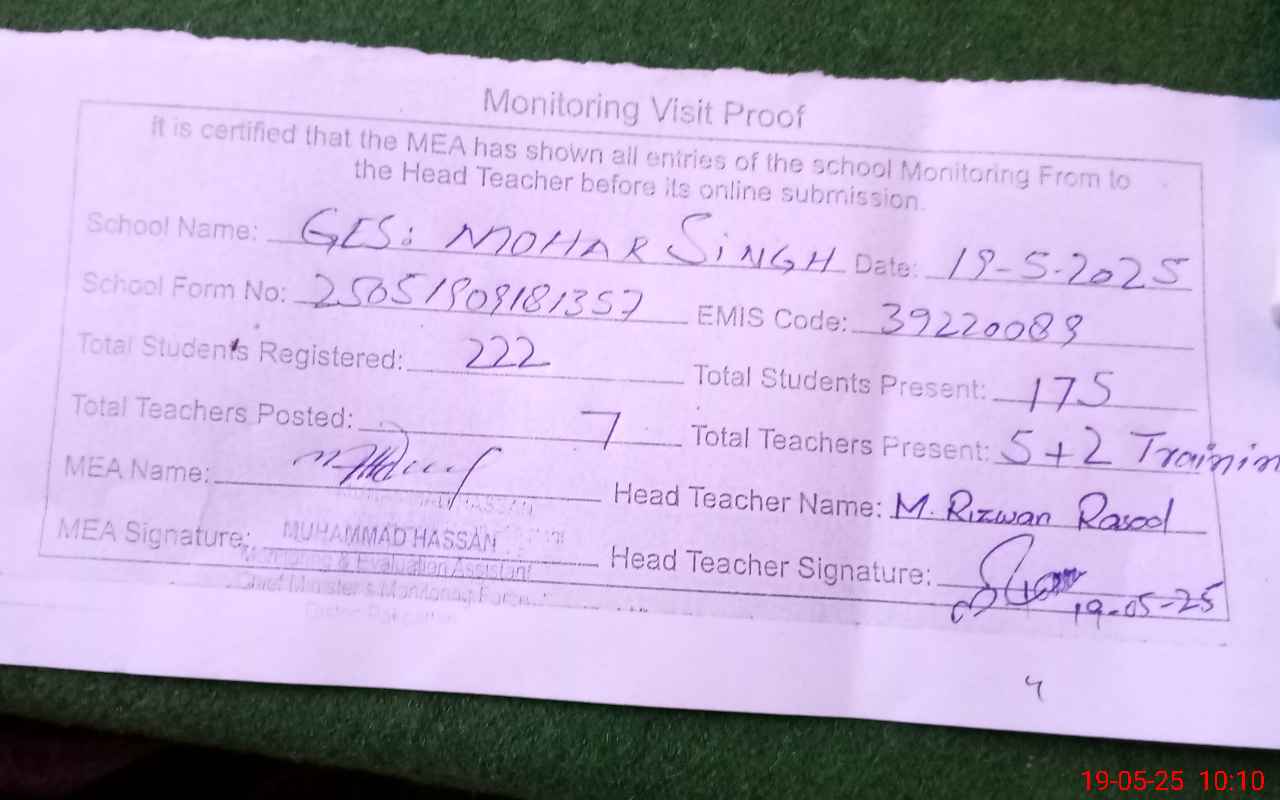 Monitoring Visit Proof
it is certified that the MEA has shown all entries of the school Monitoring From to
the Head Teacher before its online submission.
School Name: GES: MOHAR SINGH Date: 19-5-2025
School Form No: 25051909181357 EMIS Code: 39220089
Total Students Registered: 222 Total Students Present: 175
Total Teachers Posted: 7 Total Teachers Present: 5+2 Trainin
MEA Name: Head Teacher Name: M. Rizwan Rasool
MEA Signature: MUHAMMAD HASSAN Head Teacher Signature:
Monitoring & Evaluation Assistant
Chief Minister's Monitoring Force
19-05-25
4
19-05-25 10:10